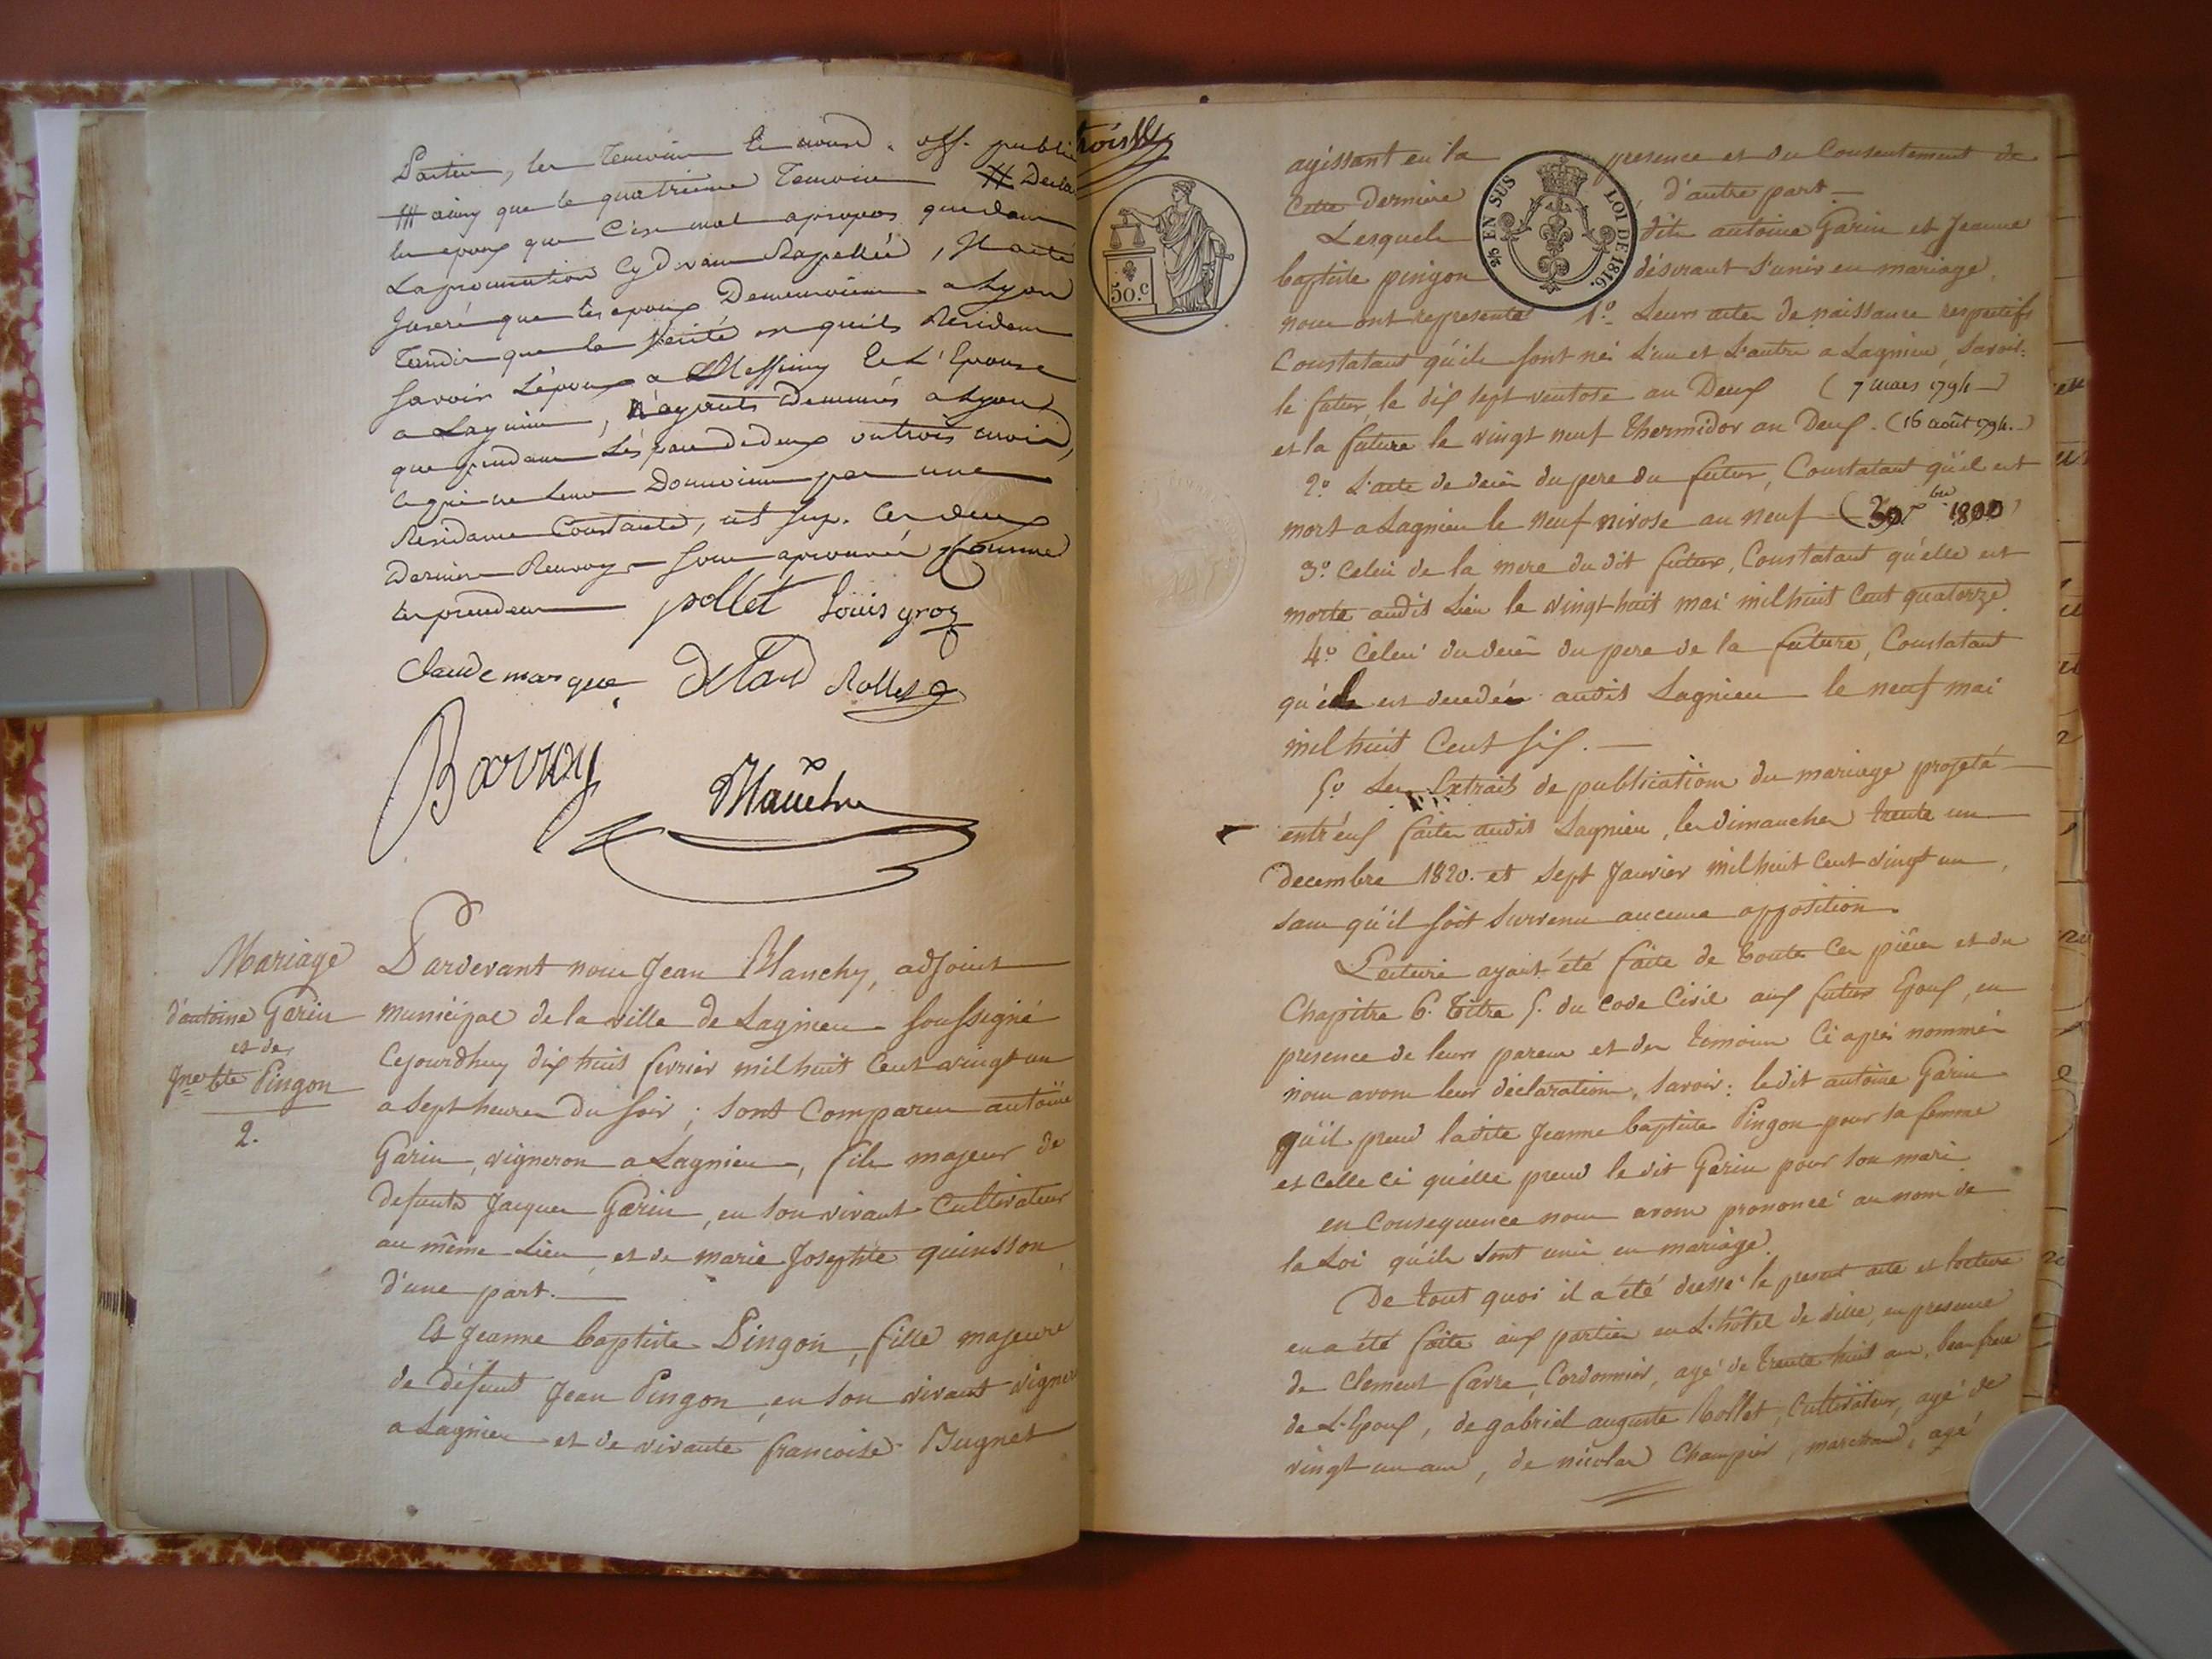 Parties, les Temoins Et nous d. off. public
ainsy que le quatrieme Temoin # Decla
les epoux que C'est mal apropos que dans
La procuration Cy devant Rapellée, Il a été
Inseré que les epoux Demeuroient a Lyon
Tandis que la Verité est quils Resident
Savoir L'epoux a Messimy Et L'Epouse
a Lagnieu, N'ayants demeurés a Lyon
que pendant L'espace de deux ou trois mois,
ce qui ne leur Donnoient pas une
Residance Constante, ces deux
derniers Renvoys sont aprouvés Comme
les precedents pollet Louis groz
Claude marque Rollet
Barroy
Mariage
d'antoine Garin
et de
Jne bte Pingon
2.
Pardevant nous Jean Blanchy, adjoint
municipal de la ville de Lagnieu soussigné
Cejourdhuy dix huit fevrier mil huit Cent vingt un
a sept heures du soir ; sont Comparus antoine
Garin, vigneron a Lagnieu, fils majeur de
defunts Jacques Garin, en son vivant Cultivateur
au même Lieu, et de marie Josephte quinsson
d'une part.
Et Jeanne baptiste Pingon, fille majeure
de défunt Jean Pingon, en son vivant vigner
a Lagnieu et de vivante francoise Bugnet
trois
50.c
EN SUS LOI DE 1816.
agissant en la presence et du Consentement de
Cette derniere, d'autre part
Lesquels dits antoine Garin et Jeanne
baptiste pingon désirant s'unir en mariage,
nous ont representé 1.o Leurs actes de naissance respectifs
Constatant qu'ils sont nés L'un et L'autre a Lagnieu, Savoir:
le futur, le dix sept ventose an Deux (7 mars 1794)
et la future le vingt neuf thermidor an Deux. (16 août 1794.)
2.o L'acte de decès du pere du futur, Constatant qu'il est
mort a Lagnieu le neuf nivose an neuf (30 Xbre 1800)
3.o Celui de la mere du dit futur, Constatant qu'elle est
morte audit Lieu le vingt huit mai mil huit Cent quatorze.
4.o Celui du decès du pere de la future, Constatant
qu'il est decedé audit Lagnieu le neuf mai
mil huit Cent six.
5.o Les Extraits de publications du mariage projeté
entr'eux faites audit Lagnieu, les dimanches trente un
decembre 1820. et sept Janvier mil huit Cent vingt un,
sans qu'il soit survenu aucune opposition.
Lecture ayant été faite de toutes Ces pièces et du
Chapitre 6. titre 5. du Code Civil aux futurs Epoux, en
presence de leurs parens et des témoins Ci après nommés
nous avons leur déclaration, savoir: le dit antoine Garin
qu'il prend ladite Jeanne baptiste Pingon pour sa femme
et Celle Ci qu'elle prend le dit Garin pour son mari.
en Consequence nous avons prononcé au nom de
la Loi qu'ils sont unis en mariage.
De tout quoi il a été dressé le present acte et lecture
en a été faite aux parties en L'hôtel de ville, en presence
de Clement favre, Cordonnier, agé de trente huit ans, beau frere
de L'Epoux, de gabriel auguste Rollet, Cultivateur, agé de
vingt un ans, de nicolas Champier, marchand, agé